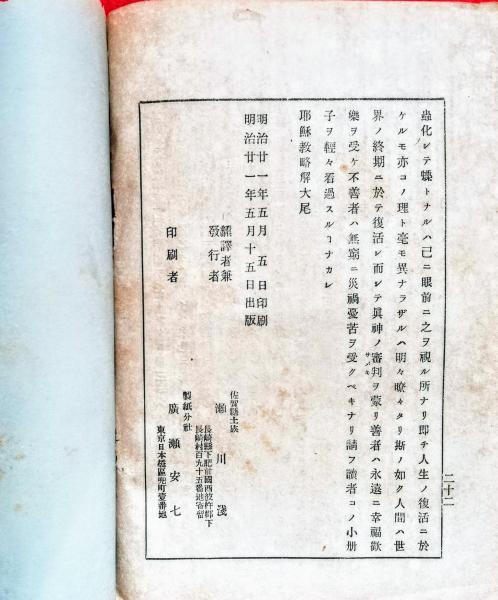 蟲化シテ蝶トナルハ已ニ眼前ニ之ヲ視ル所ナリ卽チ人生ノ復活ニ於
ケルモ亦コノ理ト毫モ異ナラザルハ明々瞭々タリ斯ノ如ク人間ハ世
界ノ終期ニ於テ復活シ而シテ眞神ノ審判ヲ蒙リ善者ハ永遠ニ幸福歡
サバキ
樂ヲ受ケ不善者ハ無窮ニ災禍憂苦ヲ受クベキナリ請フ讀者コノ小册
子ヲ輕々看過スルヿナカレ
耶穌敎略解大尾
二十二
明治廿一年五月五日印刷
明治廿一年五月十五日出版
飜譯者兼
發行者
佐賀縣士族
瀨川淺
長崎縣下肥前國西彼杵郡下
長崎村百九十五番地寄留
印刷者
製紙分社
廣瀨安七
東京日本橋區兜町壹番地